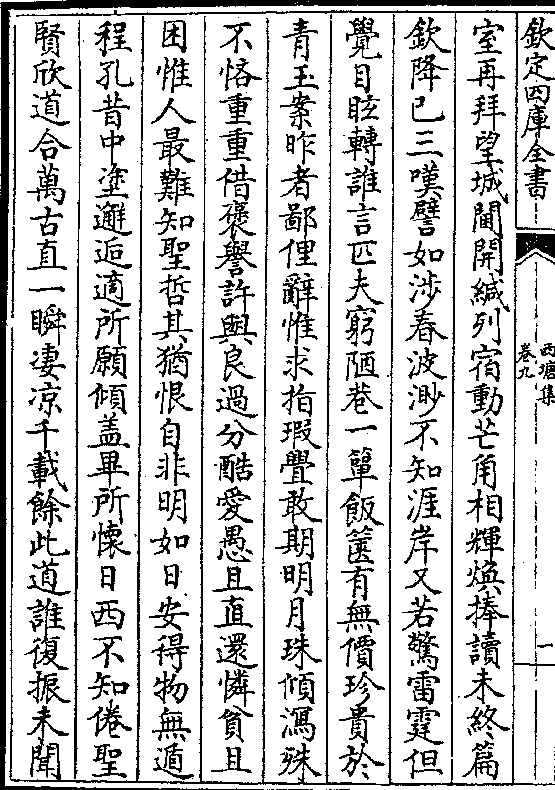 欽定四庫全書
西塘集
卷九
一
室再拜望城闉開緘列宿動芒角相輝煥捧讀未終篇
欽降已三嘆譬如涉春波渺不知涯岸又若驚雷霆但
覺目眩轉誰言匹夫窮陋巷一簞飯篋有無價珍貴於
青玉案昨者鄙俚辭惟求指瑕舋敢期明月珠傾瀉殊
不悋重重借褒譽許與良過分酷愛愚且直還憐貧且
困惟人最難知聖哲其猶恨自非明如日安得物無遁
程孔昔中塗邂逅適所願傾盖畢所懷日西不知倦聖
賢欣道合萬古直一瞬凄凉千載餘此道誰復振未聞